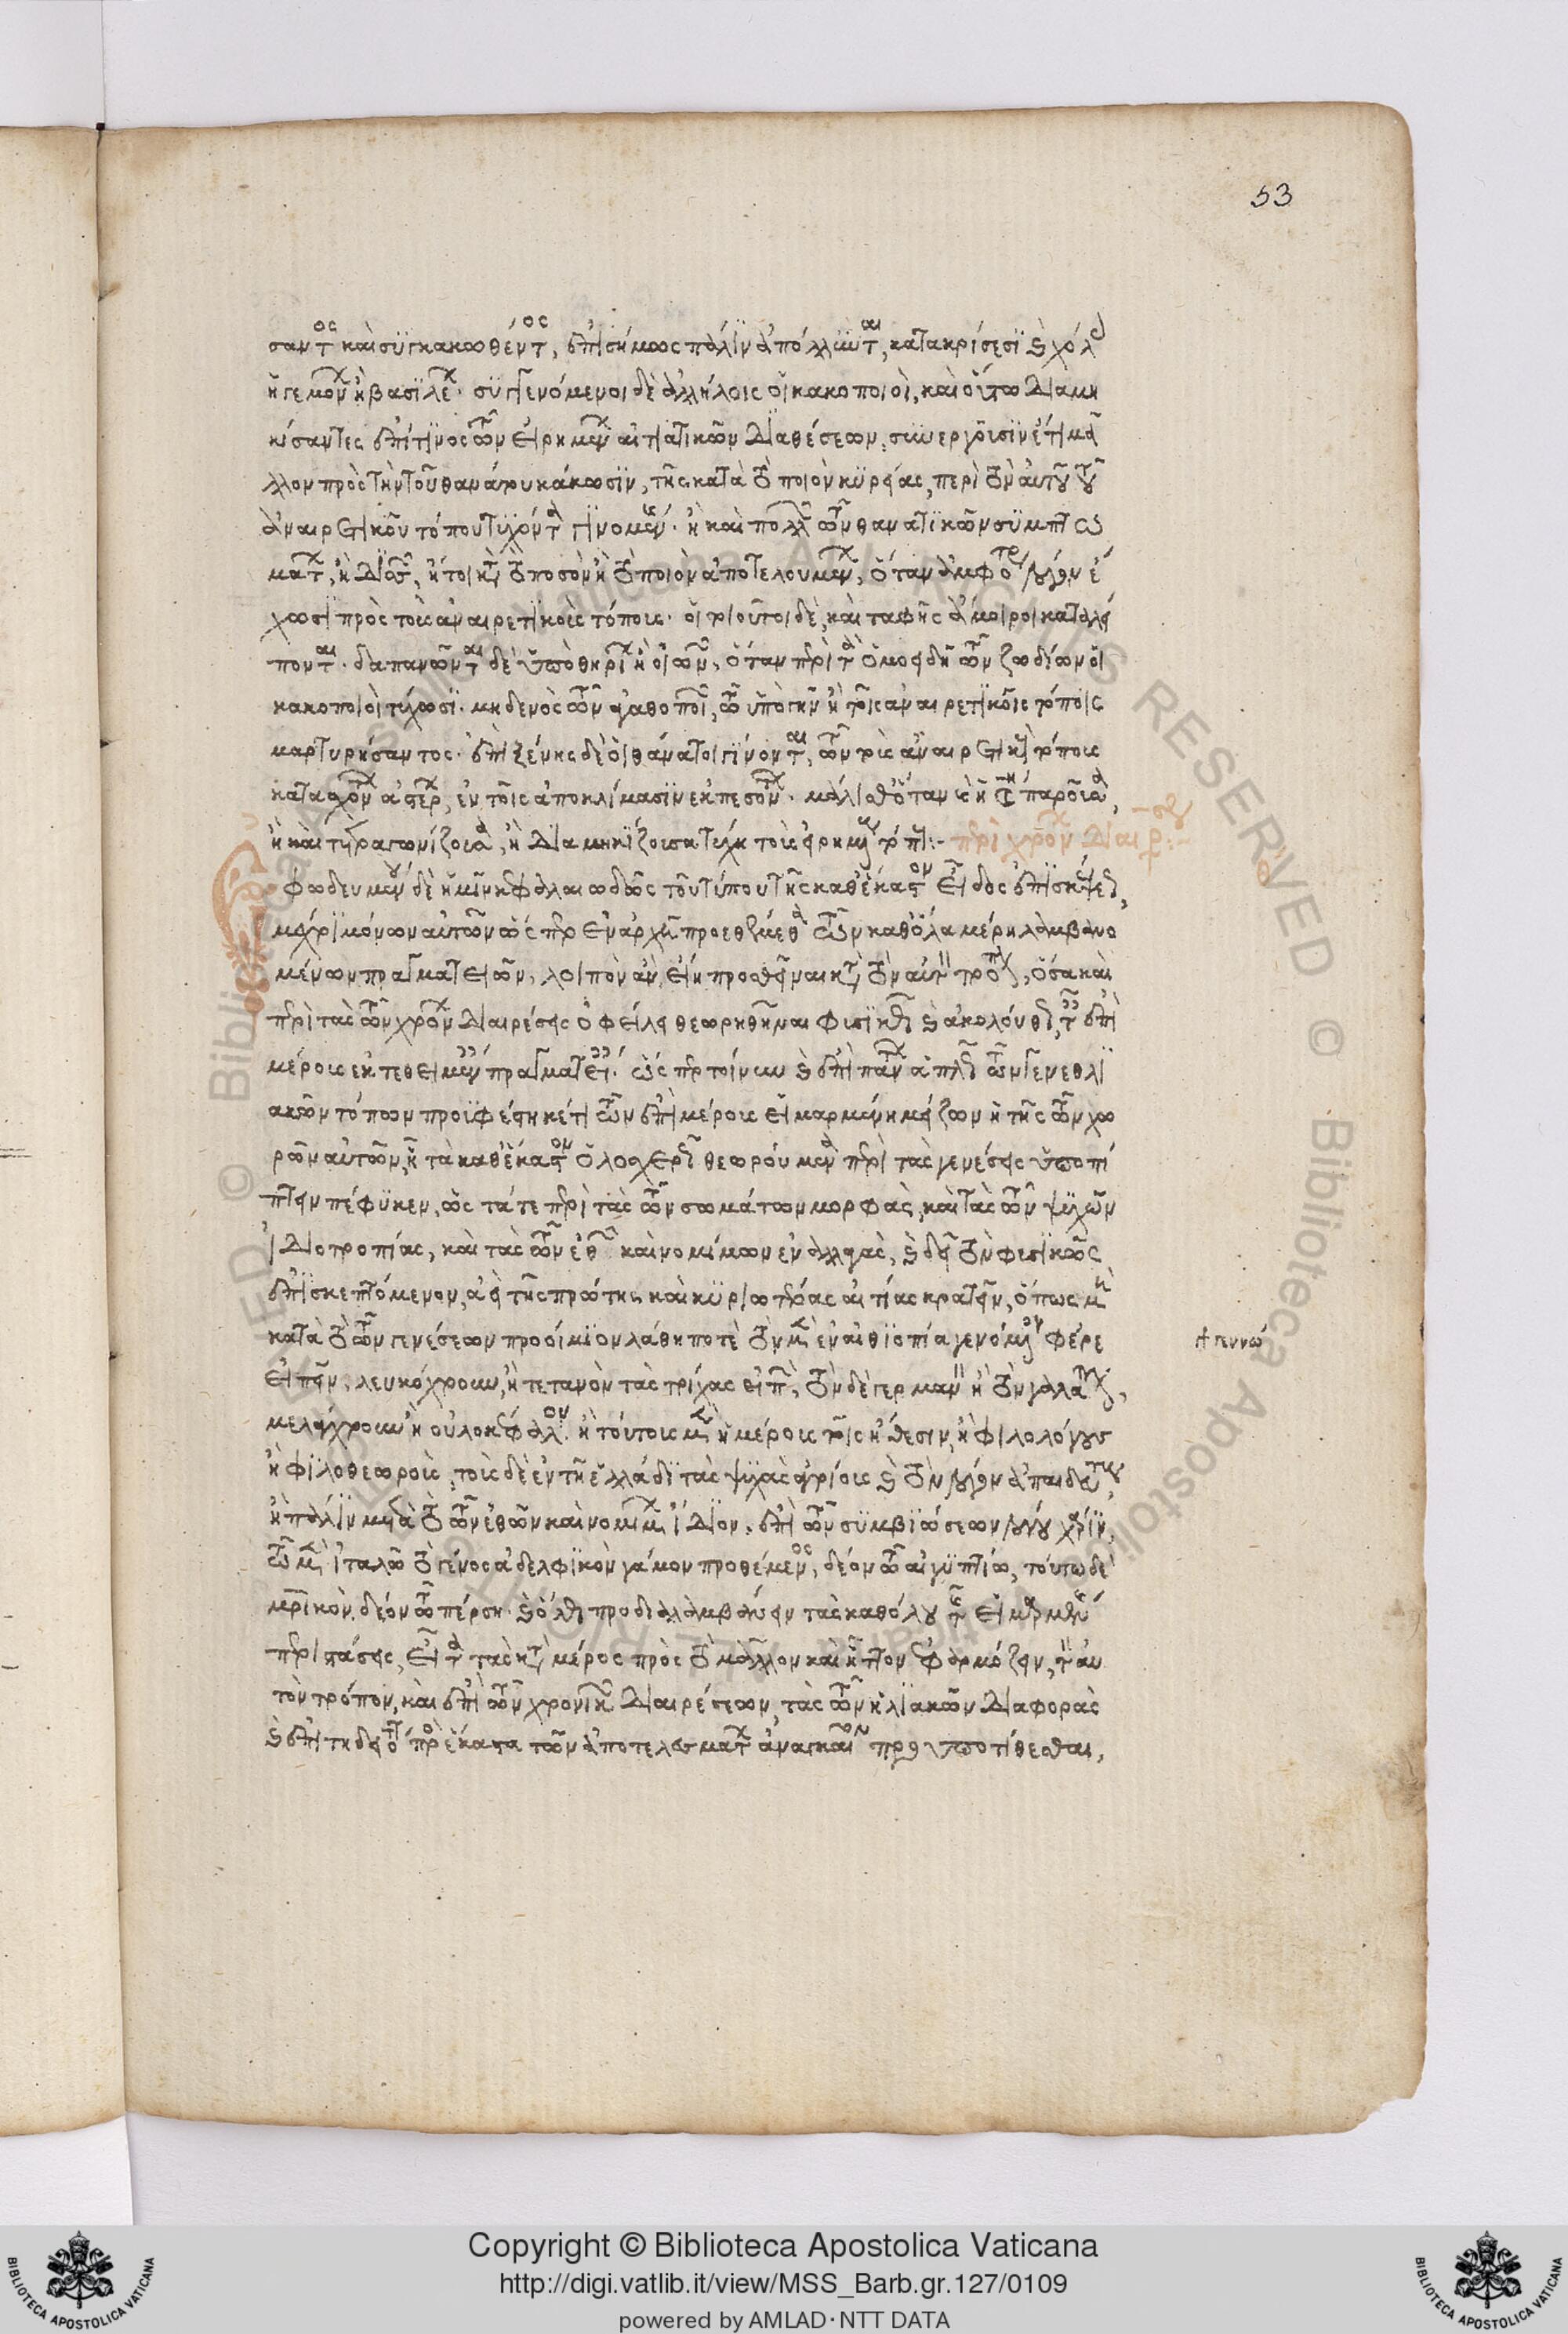 53
σαντος καὶ συγκακωθέντος, ἐπισήμως πάλιν ἀπόλλυνται, κατακρίσεσι καὶ χόλοις
ἡγεμόνων ἢ βασιλέων. συγγενόμενοι δὲ ἀλλήλοις οἱ κακοποιοὶ, καὶ οὕτω διαμη
κίσαντες ἐπί τινος τῶν εἰρημένων αἰτιατικῶν διαθέσεων, συνεργοῦσιν ἔτι μᾶ
λλον πρὸς τὴν τοῦ θανάτου κάκωσιν, τῆς κατὰ τὸ ποιὸν κυρείας, περὶ τὸν αὐτοῦ τοῦ
ἀναιρετικοῦ τόπου τυχόντα γινομένης. ἢ καὶ πολλῶν τῶν θανατικῶν συμπτω
μάτων, ἢ δισσῶν, ἤτοι κατὰ τὸ ποσὸν ἢ τὸ ποιὸν ἀποτελουμένων, ὅταν ἀμφότεροι λόγον ἔ
χωσι πρὸς τοὺς ἀναιρετικοὺς τόπους. οἱ τοιοῦτοι δὲ, καὶ ταφῆς ἄμοιροι καταλεί
πονται. δαπανῶνται δὲ ὑπὸ θηρίων ἢ οἰωνῶν, ὅταν περὶ τὰ ὁμοειδῆ τῶν ζωδίων οἱ
κακοποιοὶ τύχωσι. μηδενὸς τῶν ἀγαθοποιῶν, τῷ ὑπὸ γῆν ἢ τοῖς ἀναιρετικοῖς τόποις
μαρτυρήσαντος. ἐπὶ ξένης δὲ οἱ θάνατοι γίνονται, τῶν τοὺς ἀναιρετικοὺς τόπους
κατασχόντων ἀστέρων, ἐν τοῖς ἀποκλίμασιν ἐκπεσόντων. μάλισθ' ὅταν καὶ ἡ σελήνη παροῦσα,
ἢ καὶ τετραγωνίζουσα, ἢ διαμηκίζουσα τύχῃ τοὺς εἰρημένους τόπους:- περὶ χρόνων διαιρέσεως:-
φωδευμένου δὲ ἡμῖν κεφαλαιωδῶς τοῦ τύπου τῆς καθ' ἕκαστον εἶδος ἐπισκέψεως,
μέχρι μόνων αὐτῶν ὥσπερ ἐν ἀρχῇ προεθέμεθα τῶν καθ' ὅλα μέρη λαμβανο
μένων πραγματειῶν, λοιπὸν ἂν εἴη προσθεῖναι κατὰ τὸν αὐτὸν τρόπον, ὅσα καὶ
περὶ τὰς τῶν χρόνων διαιρέσεις ὀφείλει θεωρηθῆναι φυσικῶς καὶ ἀκολούθως, ταῖς ἐπὶ
μέρους ἐκτεθειμέναις πραγματείαις. ὥσπερ τοίνυν καὶ ἐπὶ πάντων ἁπλῶς τῶν γενεθλι
ακῶν τόπων προϋφέστηκέ τι τῶν ἐπὶ μέρους εἱμαρμένη μείζων ἡ τῆς τῶν χω
ρῶν αὐτῶν, ᾗ τὰ καθ' ἕκαστον ὁλοσχερῶς θεωρούμενα περὶ τὰς γενέσεις ὑποπί
πτειν πέφυκεν, ὡς τά τε περὶ τὰς τῶν σωμάτων μορφὰς, καὶ τὰς τῶν ψυχῶν
ἰδιοτροπίας, καὶ τὰς τῶν ἐθῶν καὶ νομίμων ἐναλλαγὰς, καὶ δεῖ τὸν φυσικῶς
ἐπισκεπτόμενον, ἀεὶ τῆς πρώτης καὶ κυριωτέρας αἰτίας κρατεῖν, ὅπως μὴ
κατὰ τὸ τῶν γενέσεων προοίμιον λάθῃ ποτὲ τὸν μὲν ἐν αἰθιοπία γενόμενον φέρε
εἰπεῖν, λευκόχρουν, ἢ τετανὸν τὰς τρίχας εἰπὼν, τὸν δὲ γερμανὸν ἢ τὸν γαλάτην,
μελάγχρουν ἢ οὐλοκέφαλον. ἢ τούτους μὲν ἡμέρους τοῖς ἤθεσιν, ἢ φιλολόγους
ἢ φιλοθεώρους, τοὺς δὲ ἐν τῇ ἑλλάδι τὰς ψυχὰς ἀγρίους καὶ τὸν λόγον ἀπαιδεύτους,
ἢ πάλιν μὴ διὰ τὸ τῶν ἐθῶν καὶ νομίμων ἴδιον, ἐπὶ τῶν συμβιώσεων λόγου χάριν,
τῷ μὲν ἰταλῷ τὸ γένος ἀδελφικὸν γάμον προθέμενος, δέον τῷ αἰγυπτίῳ, τούτῳ δὲ
μητρικὸν, δέον τῷ πέρσῃ. καὶ ὅλως προδιαλαμβάνειν τὰς καθόλου τῆς εἱμαρμένης
περιστάσεις, εἶτα τὰς κατὰ μέρος πρὸς τὸ μᾶλλον καὶ ἧττον ἐφαρμόζειν, τὸν αὐ
τὸν τρόπον, καὶ ἐπὶ τῶν χρονικῶν διαιρέσεων, τὰς τῶν ἡλικιακῶν διαφορὰς
καὶ ἐπιτηδειότητας πρὸς ἕκαστα τῶν ἀποτελεσμάτων ἀναγκαῖον προϋποτίθεσθαι,
Copyright © Biblioteca Apostolica Vaticana
http://digi.vatlib.it/view/MSS_Barb.gr.127/0109
powered by AMLAD · NTT DATA
BIBLIOTECA APOSTOLICA VATICANA
BIBLIOTECA APOSTOLICA VATICANA